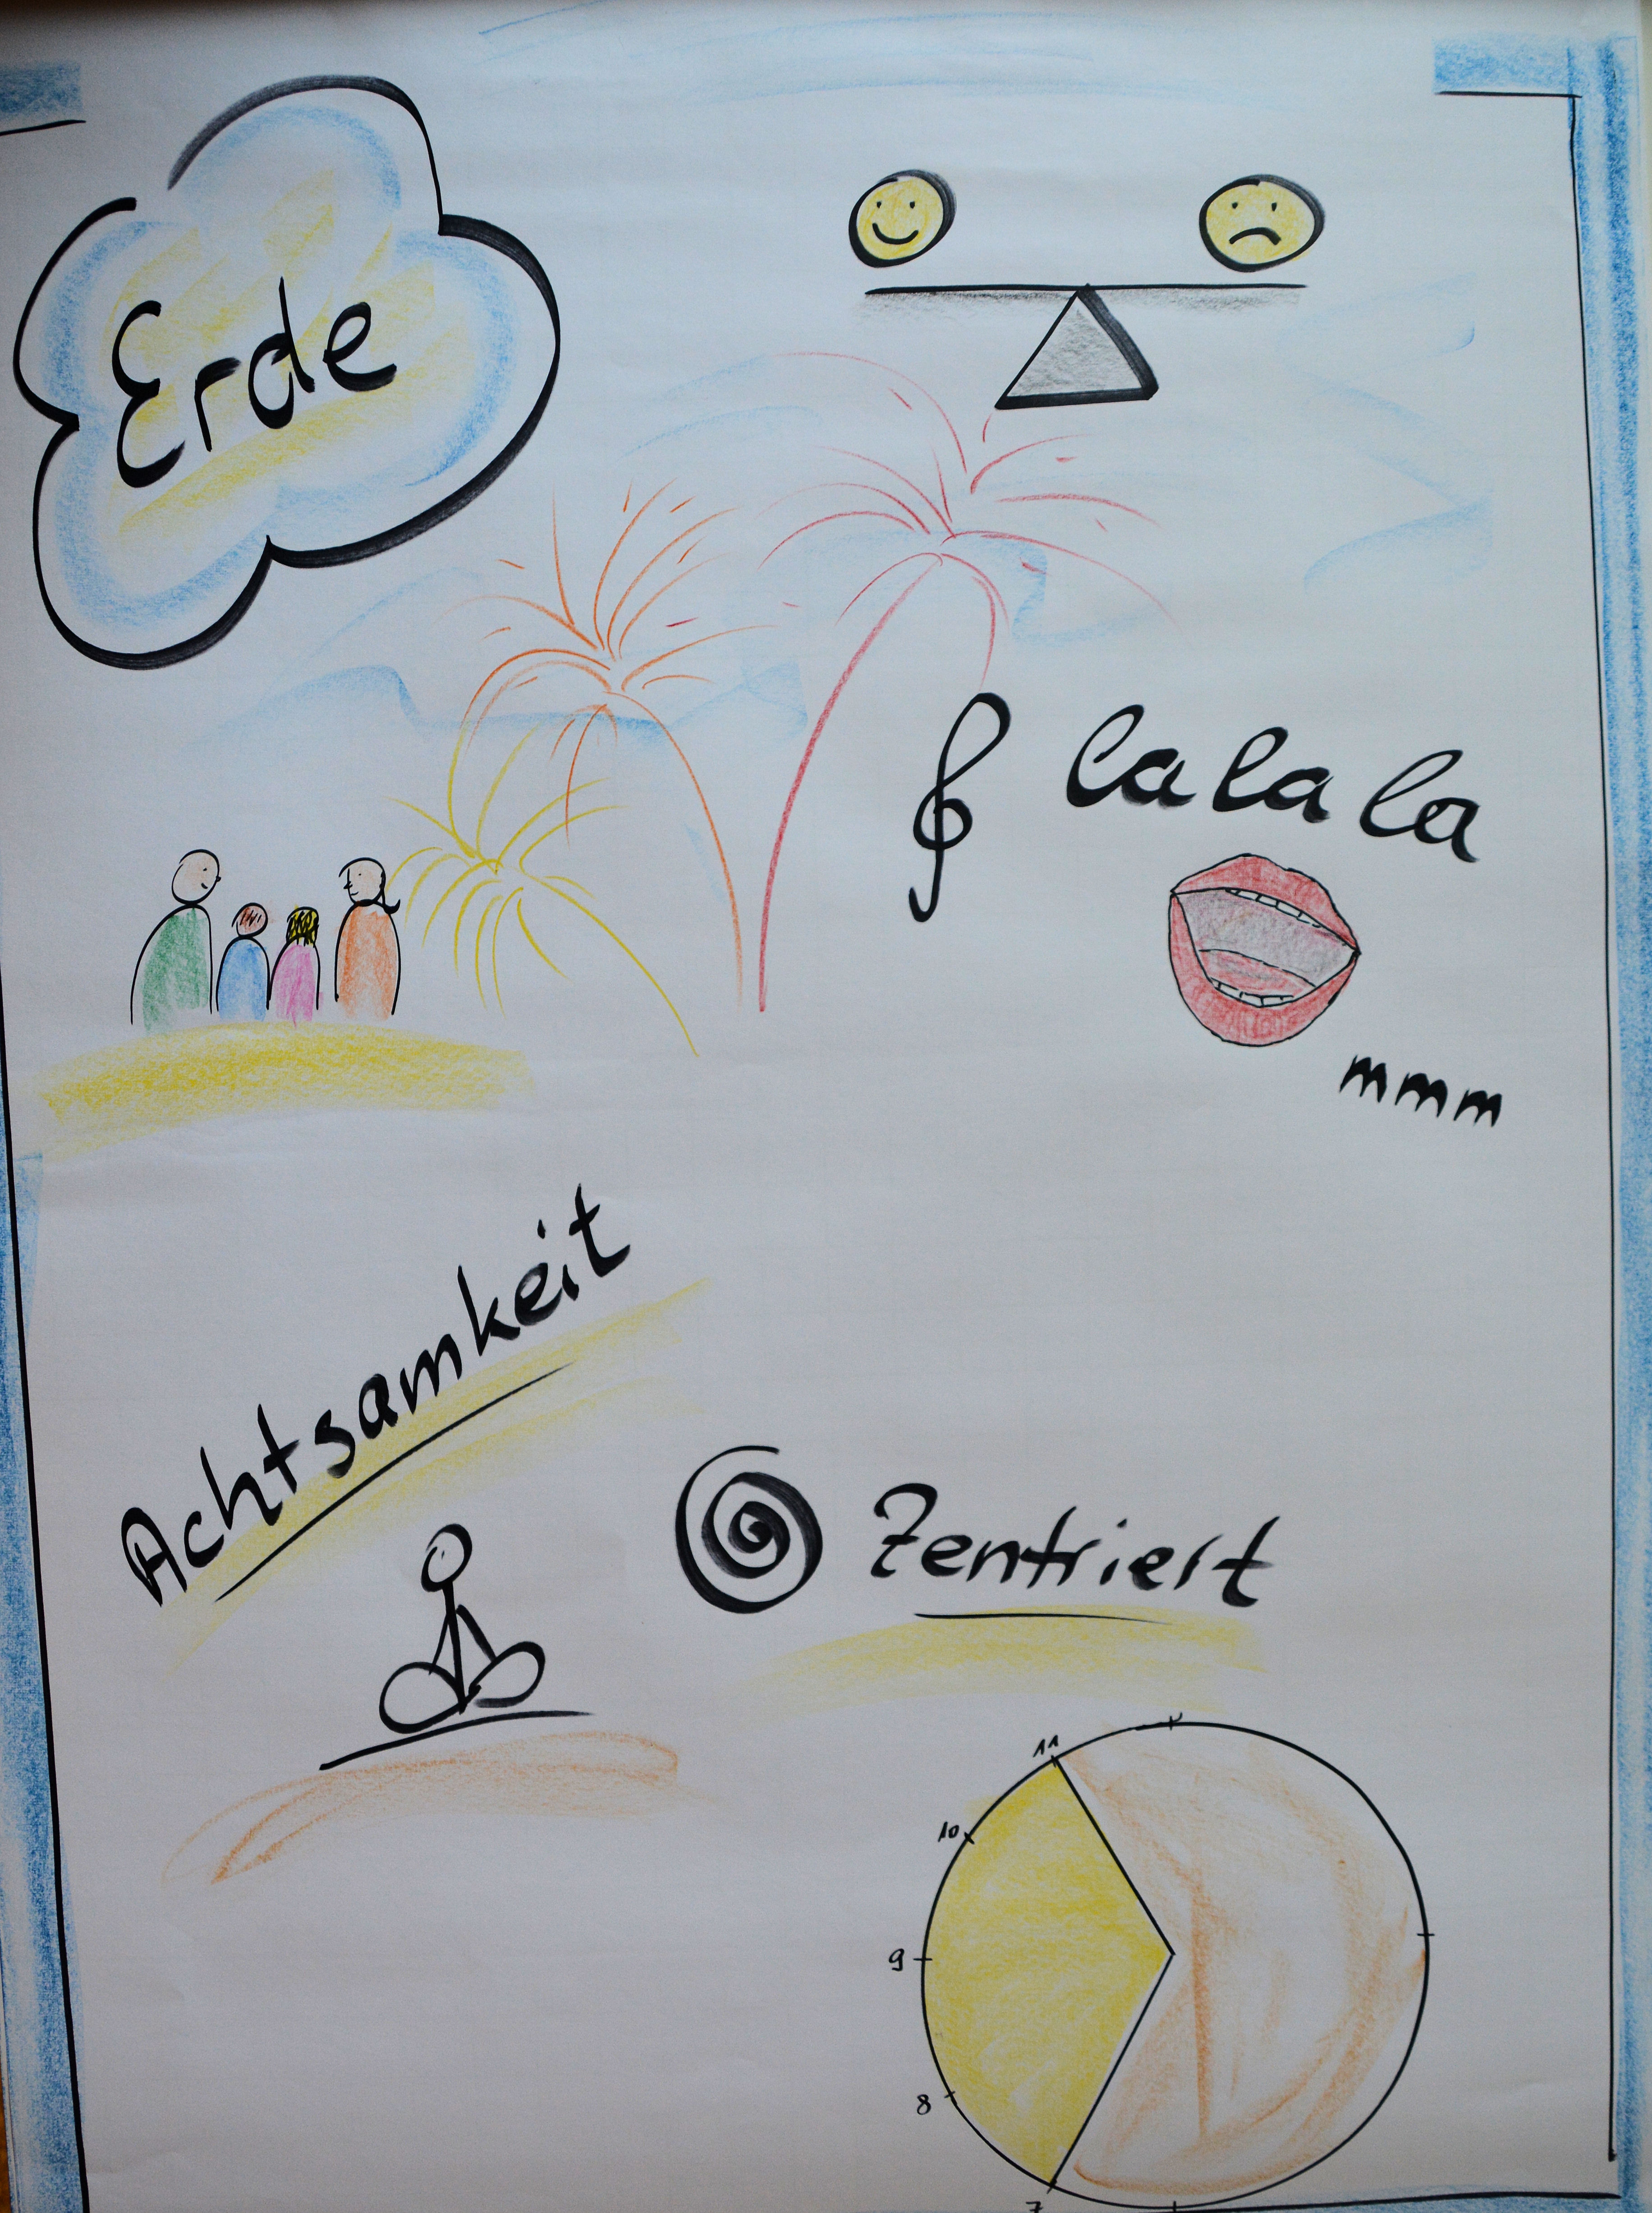 Erde
la la la
mmm
Achtsamkeit
Zentriert
11
10
9
8
7